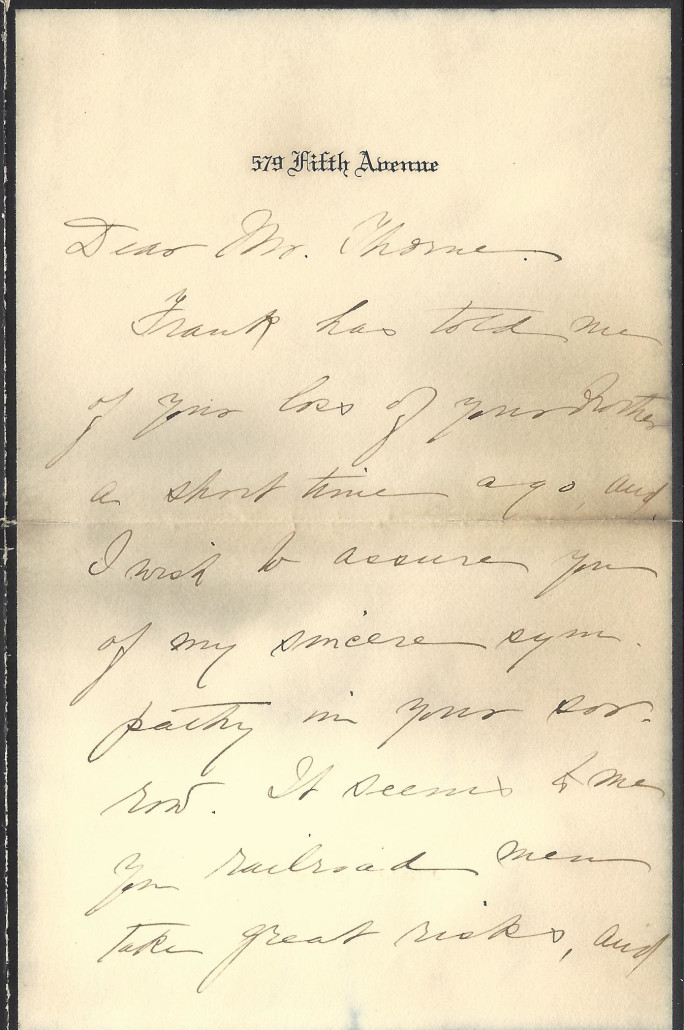 579 Fifth Avenue
Dear Mr. Thorne.
Frank has told me
of your loss of your brother
a short time ago, and
I wish to assure you
of my sincere sym-
pathy in your sor-
row. It seems to me
you railroad men
take great risks, and